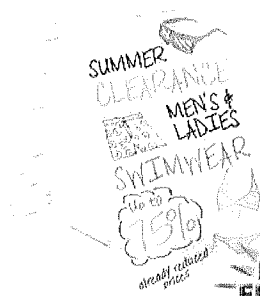 SUMMER
CLEARANCE
MEN'S &
LADIES
SWIMWEAR
Up to
75%
already reduced
prices